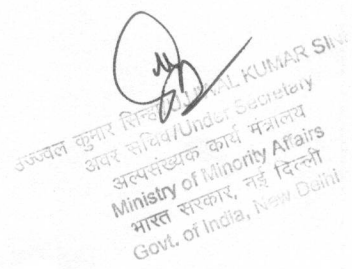 उज्ज्वल कुमार सिन्हा/UJJWAL KUMAR SIN
अवर सचिव/Under Secretary
अल्पसंख्यक कार्य मंत्रालय
Ministry of Minority Affairs
भारत सरकार, नई दिल्ली
Govt. of India, New Delhi